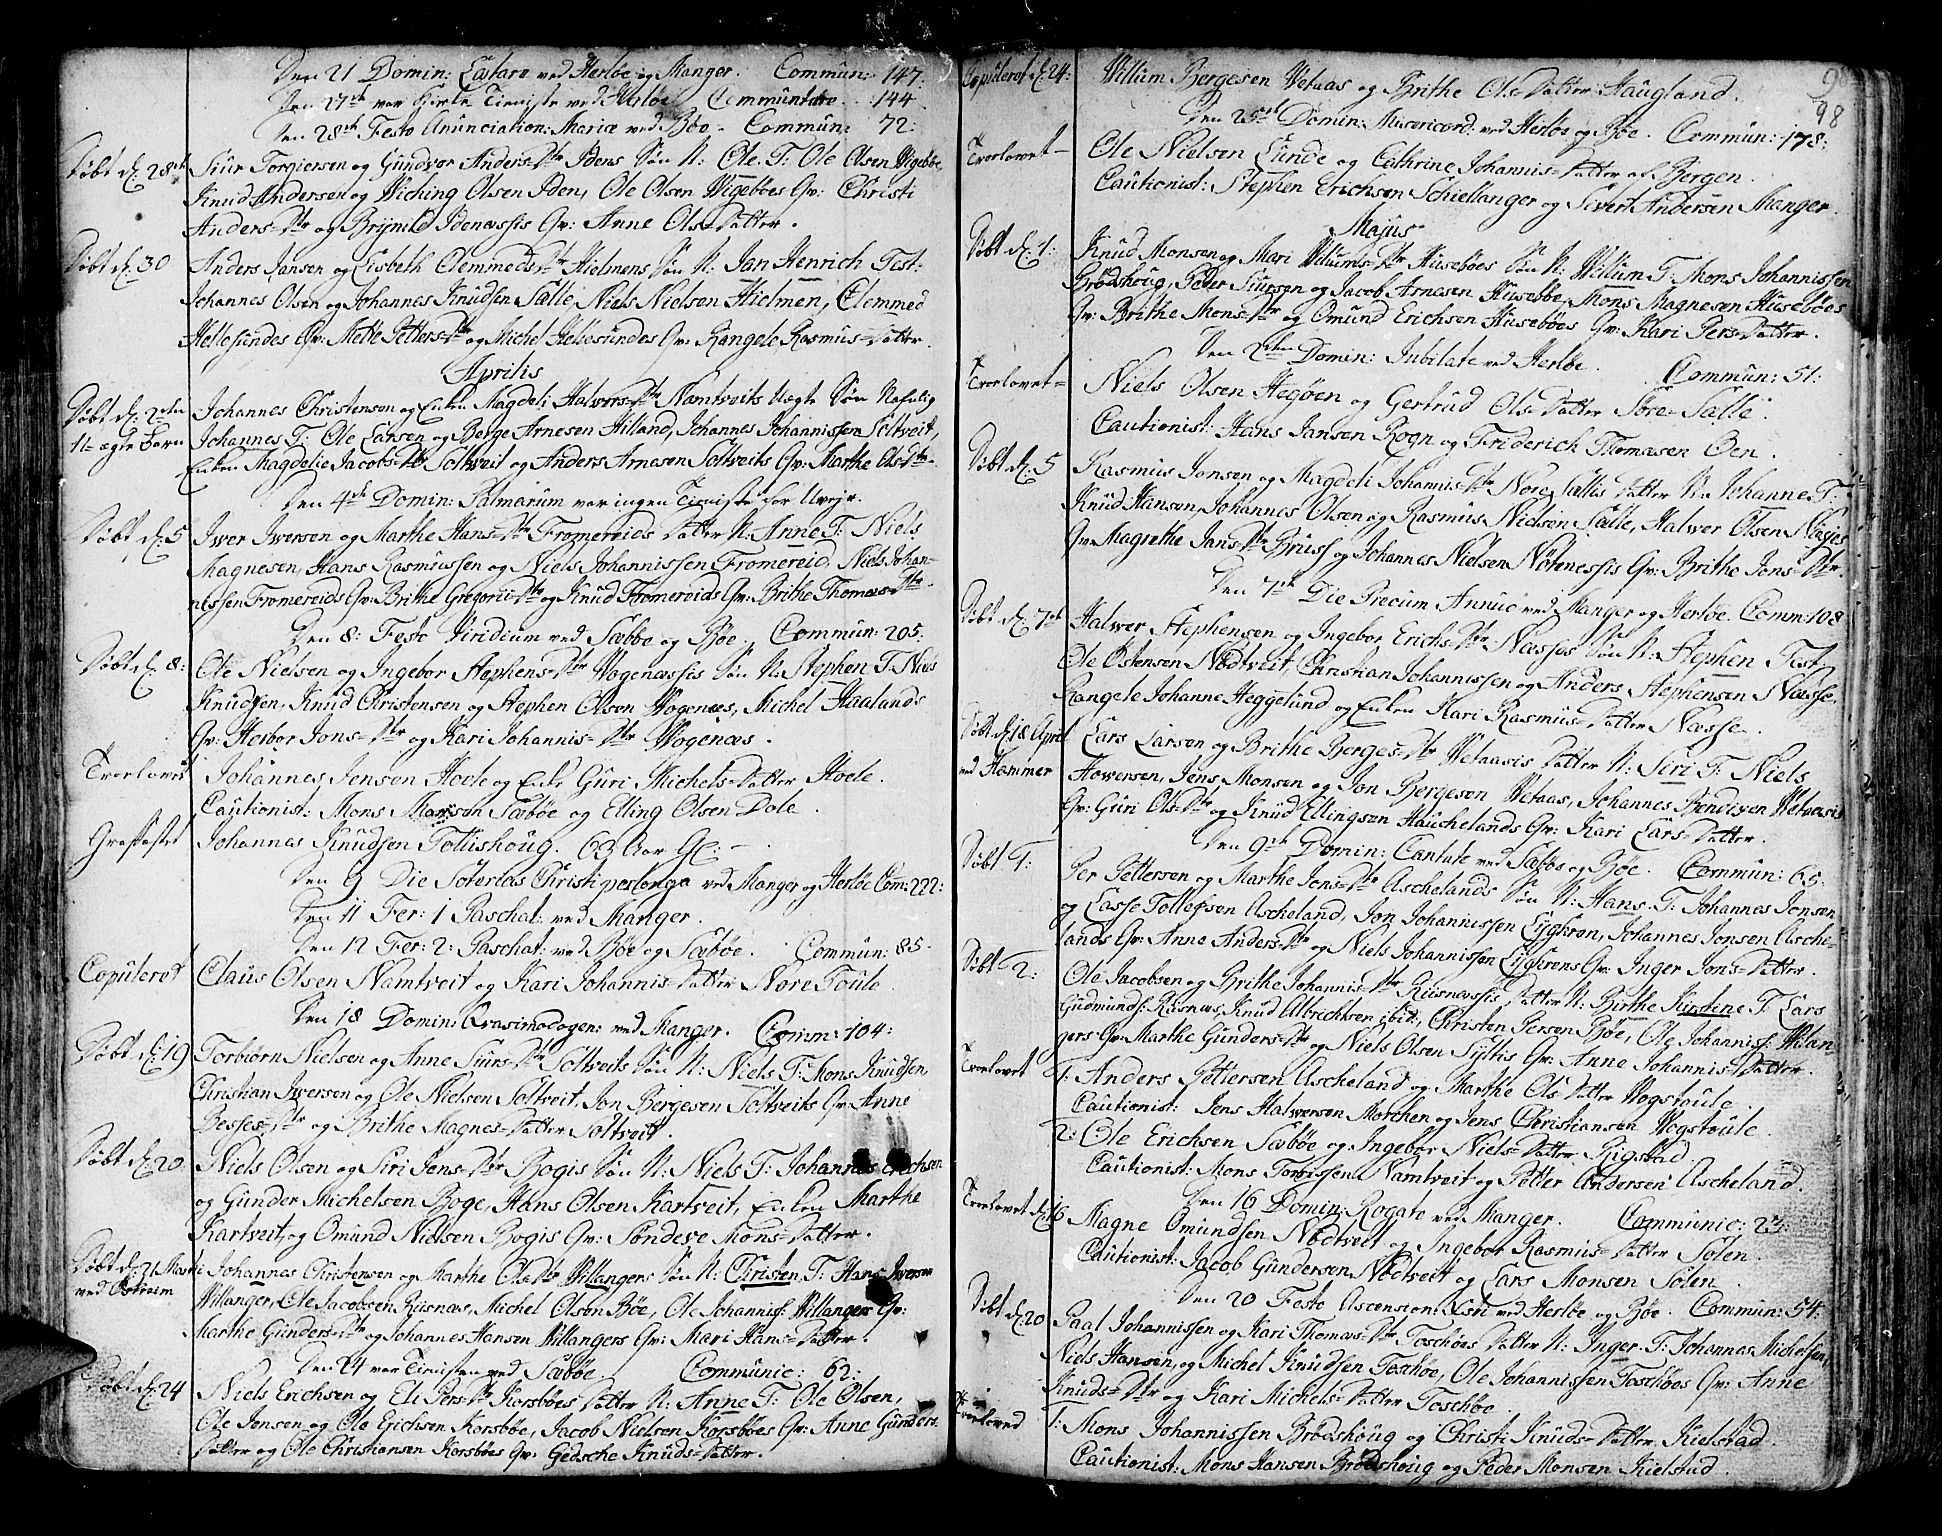 Den 21 Domin: Lætare ved Herløe og Manger. Commun: 147:
Den 27de var Kirke Tieniste ved Herløe Communtere 144
Den 28de Festo Anunciation: Mariæ ved Bøe. Commun: 72:
Døbt d: 28de Siur Torgiersen og Gundvor Anders-Dtr Idens Søn N: Ole. T: Ole Olsen Vigebøe,
Knud Andersen og Wiching Olsen Iden, Ole Olsen Wigebøes Qv: Christi
Anders-Dtr og Brynild Idenæssis Qv: Anne Ols-Datter.
Døbt d: 30 Anders Jansen og Lisbeth Clemmeds-Dtr Hielmens Søn N: Jan Henrich Test:
Johannes Olsen og Johannes Knudsen Sælle, Niels Nielsen Hielmen, Clemmed
Hellesundes Qv: Mette Petters-Dtr og Michel Hellesundes Qv: Rangele Rasmus-Datter.
Aprilis
Døbt d: 2den Johannes Christensen og Enken Magdeli Halvors-Dtr Namtveits Uægte Søn Nafnlig
U-ægte Barn Johannes T: Ole Larsen og Berge Arnesen Hiland, Johannes Johannissen Soltveit,
Enken Magdelie Jacobs-Dtr Soltveit og Anders Arnesen Soltveits Qv: Marthe Ols-Dtr.
Den 4de Domin: Palmarum var ingen Tieniste for Uvejr.
Døbt d: 5 Iwer Iwersen og Marthe Hans-Dtr Fromereids Datter N: Anne T: Niels
Magnesen, Hans Rasmussen og Niels Johannissen Fromereid. Niels Johan-
nissen Fromereids Qv: Brithe Gregorii Dtr og Knud Fromereids Qv: Brithe Thomæs-Dtr.
Den 8: Festo Viridium ved Sæbøe og Bøe. Commun: 205:
Døbt d: 8: Ole Nielsen og Ingebor Stephens-Dtr Wogenæssis Søn N: Stephen T: Niels
Knudsen, Knud Christensen og Stephen Olsen Wogenæs, Michel Haalands
Qv: Herbor Jons-Dtr og Kari Johannis-Dtr Wogenæs.
Trorlovet Johannes Jensen Hoele og Enke Guri Michels-Datter Hoele.
Cautionist: Mons Monsen Sæbøe og Elling Olsen Dole.
Grafæstet Johannes Knudsen Tollishoug. 63 Aar Gl: -
Den 9 Die Soterias Christi perlonga ved Manger og Herløe Com: 222:
Den 11 Fer: 1 Paschal: ved Manger.
Den 12 Fer: 2: Paschat: ved Bøe og Sæbøe. Commun: 85.
Copuleret Claus Olsen Namtveit og Kari Johannis-Datter Nore Toule.
Den 18 Domin: Qvasimodogen: ved Manger. Comm: 104:
Døbt d: 19 Torbiørn Nielsen og Anne Siurs-Dtr Soltveits Søn N: Niels T: Mons Knudsen
Christian Iwersen og Ole Nielsen Soltveit, Jon Bergesen Soltveits Qv: Anne
Besses-Dtr og Brithe Magnes-Datter Soltveit.
Døbt d: 20 Niels Olsen og Siri Jens-Dtr Bogis Søn N: Niels T: Johannes Erichsen
og Gunder Michelsen Boge, Hans Olsen Kartveit, Enken Marthe
Kartveit, og Omund Nielsen Bogis Qv: Søndeve Mons-Datter.
Døbt d: 21 Marti Johannes Christensen og Marthe Ols-Dtr Willangers Søn N: Christen T: Hans Iwersen
ved Ostreim Willanger, Ole Jacobsen Riisnæs, Michel Olsøn Bøe, Ole Johanniss: Willangers Qv:
Marthe Gunders-Dtr og Johannes Hansøn Willangers Qv: Mari Hans-Datter.
Den 24 var Tienisten ved Sæbøe. Communic: 62:
Døbt d: 24 Niels Erichsen og Eli Pers-Dtr Korsbøes Datter N: Anne T: Ole Olsen,
Ole Jensen og Ole Erichsen Korsbøe, Jacob Nielsen Korsbøes Qv: Anne Gunders-
Datter og Ole Christiansen Korsbøes Qv: Gedsche Knuds-Datter.
98
98
Copuleret d: 24: Willum Bergesen Vetaas og Brithe Ols-Datter Haugland.
Den 25de Domin: Misericord: ved Herløe og Bøe. Commun: 178:
Trorlovet- Ole Nielsen Lunde og Cathrine Johannis-Datter af Bergen.
Cautionist: Stephen Erichsen Schiellanger og Sivert Andersen Manger.
Majus
Døbt d: 1: Knud Monsen og Mari Willums-Dtr Husebøes Søn N: Willum T: Mons Johannissen
Brodshoug, Peder Siursen og Jacob Arnesen Husebøe, Mons Magnesen Husebøes
Qv: Brithe Mons-Dtr og Omund Erichsen Husebøes Qv: Kari Pers-Datter.
Den 2den Domin: Jubilate ved Herløe. Commun: 51:
Trorlovet- Niels Olsen Hegøen og Gertrud Ols-Datter Søre-Sælle.
Cautionist: Hans Jansen Rogn og Friderich Thomasen Oen.
Døbt d: 5 Rasmus Jonsen og Magdeli Johannis-Dtr Nore Sællis Datter N: Johanne T:
Knud Hansen, Johannes Olsen og Rasmus Nielsen Sælle, Halwer Olsen Nøsjes
Qv: Magrethe Jans-Dtr Bruess og Johannes Nielsen Nøtenessis Qv: Brithe Jons-Dtr.
Den 7de Die Precum Annuo ved Manger og Herløe. Comm: 108
Døbt d: 7de Halwer Stephensen og Ingebor Erichs-Dtr Næsses Søn N: Stephen Test:
Ole Østensen Nødtveit, Christian Johannissen og Anders Stephensen Næsse,
Rangele Johanne Heggelund og Enken Kari Rasmus-Datter Næsse.
Døbt d: 18 April Lars Larsen og Brithe Berges-Dtr Wetaasis Datter N: Siri T: Niels
ved Hammer Howersen, Jens Monsen og Jon Bergesen Wetaas, Johannes Bendixen Wetaasis
Qv: Guri Ols-Dtr og Knud Ellingsøn Hauchelands Qv: Kari Lars-Datter.
Den 9de Domin: Cantate ved Sæbøe og Bøe. Commun: 65:
Døbt 1: Per Pettersen og Marthe Jons-Dtr Aschelands Søn N: Hans. T: Johannes Jonsen
og Lasse Tollefsen Ascheland, Jon Johannissen Lyghren, Johannes Jonsen Asche-
lands Qv: Anne Anders-Dtr og Niels Johannissen Lyghrens Qv: Inger Jons-Datter.
Døbt 2: Ole Jacobsen og Brithe Johannis-Dtr Riisnæssis Datter N: Birthe Kirstine T: Lars
Gudmunds: Riisnæs, Knud Albrechtsen ibid:, Christen Persen Bøe, Ole Johannis: Wilan-
gers Qv: Marthe Gunders-Dtr og Niels Olsen Syltis Qv: Anne Johannis-Datter.
Trorlovet 1: Anders Pettersen Ascheland og Marthe Ols Datter Wogstoule.
Cautionist: Jens Halwersen Morchen og Jens Christiansen Wogstoule.
2: Ole Erichsen Sæbøe og Ingebor Niels-Datter Rigstad.
Cautionist: Mons Torrissen Namtveit og Petter Andersen Ascheland.
Den 16 Domin: Rogate ved Manger. Communic: 23:
Trorlovet d: 16 Magne Omundsen Nødtveit og Ingebor Rasmus-Datter Solen.
Cautionist: Jacob Gundersen Nødtveit og Lars Monsen Solen.
Den 20 Festo Ascension: Xsti ved Herløe og Bøe. Commun: 54:
Døbt d: 20 Paal Johannissen og Kari Thomæs-Dtr Toschøes Datter N: Inger. T: Johannes Michelsen,
Niels Hansen, og Michel Knudsen Toschøe, Ole Johannissen Toschøes Qv: Anne
Knuds-Dtr og Kari Michels-Datter Toschøe.
Trorloved 1: Mons Johannissen Brodshoug og Christi Knuds-Datter Kielstad.
Cautionist: Mons Hansen Brodshoug og Peder Monsen Kielstad.